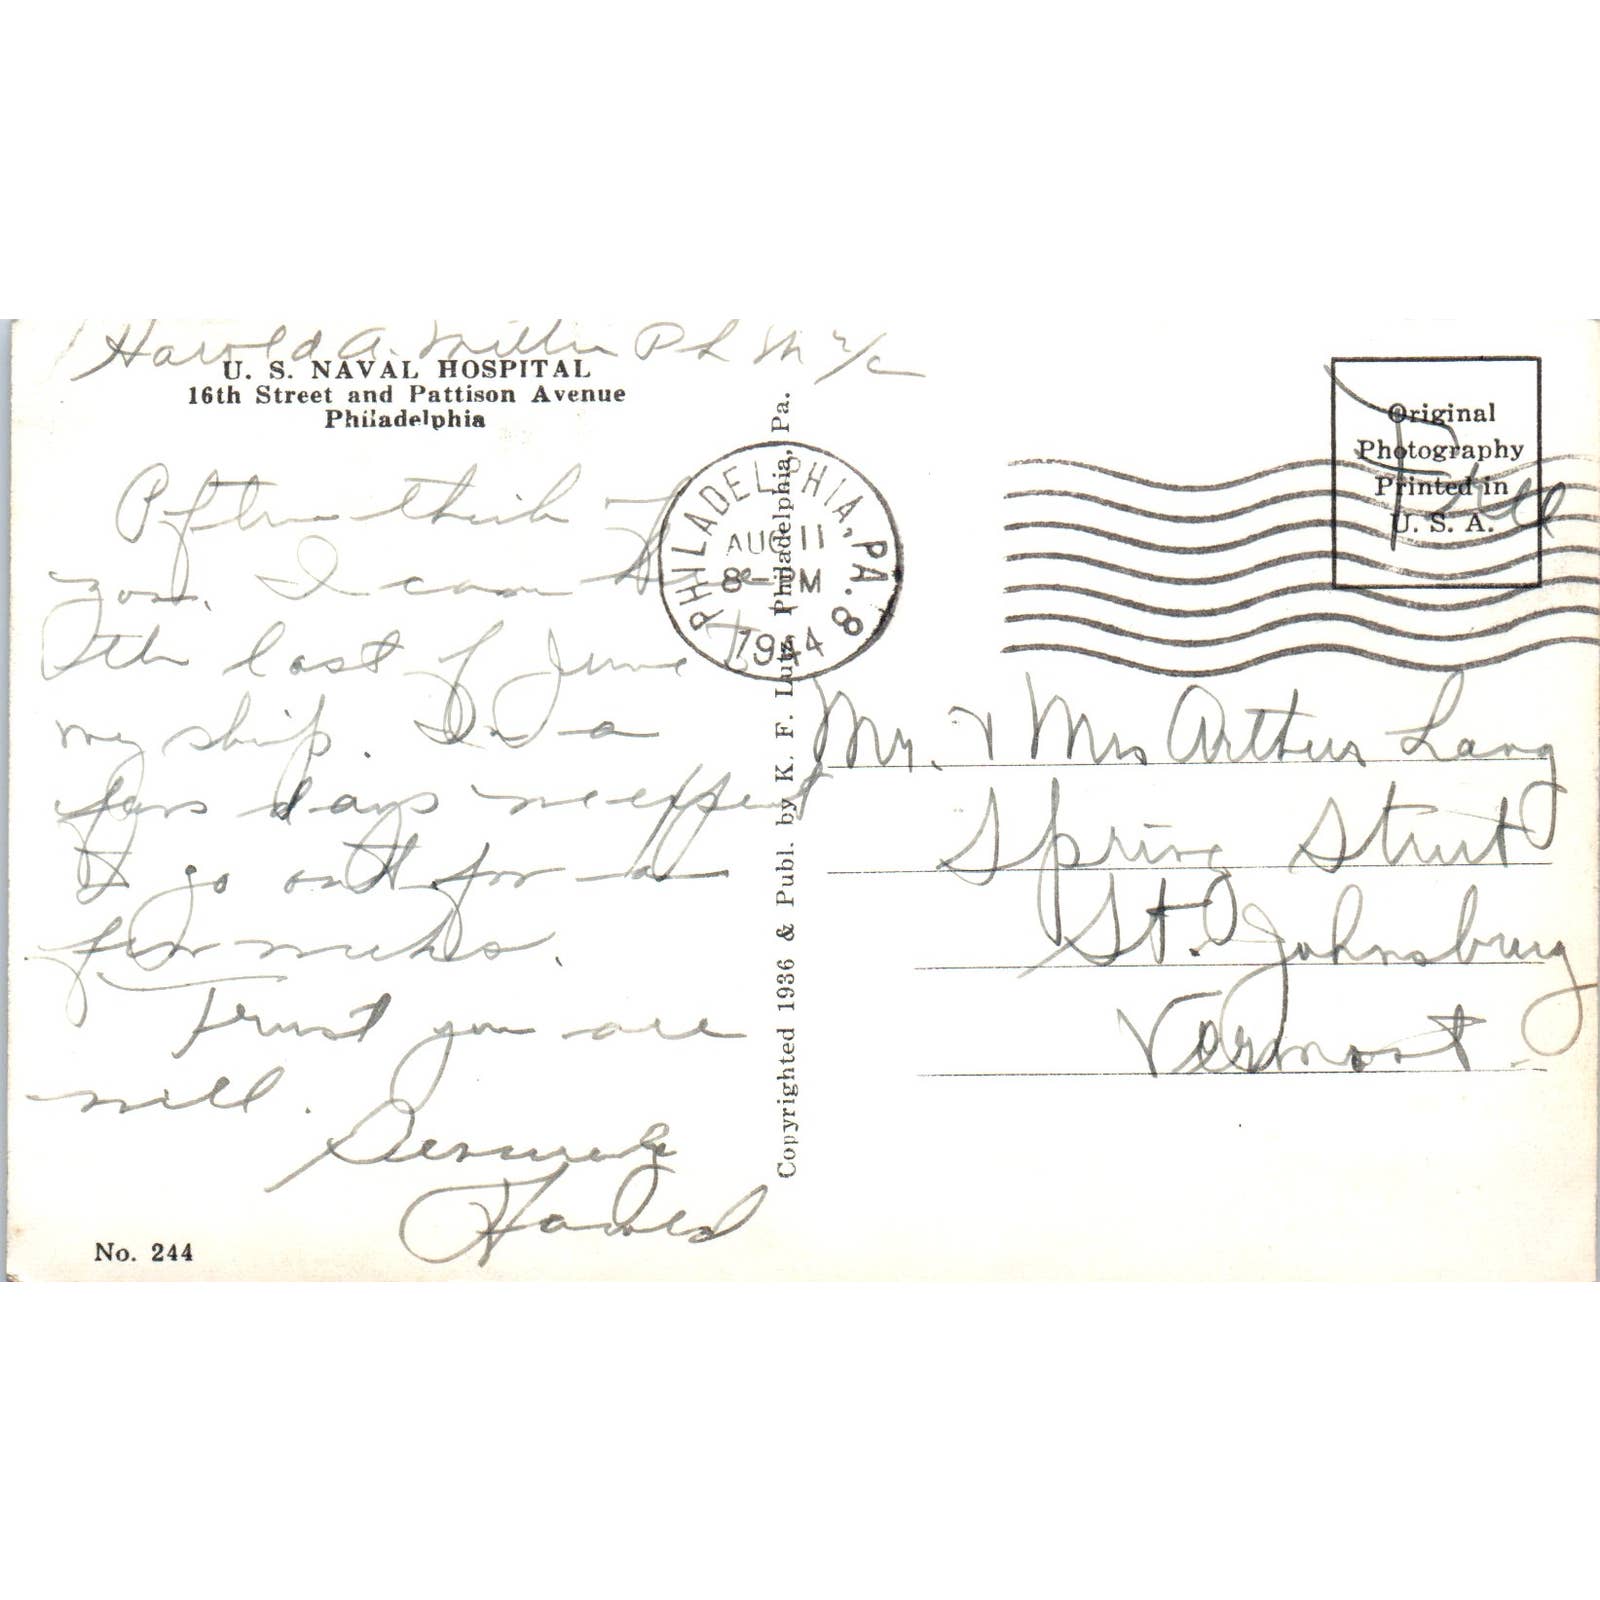 Harold A. Miller Ph M 2/c
U. S. NAVAL HOSPITAL
16th Street and Pattison Avenue
Philadelphia
Often think of
you. I came to
the last of June
my ship. In a
few days we expect
to go out for a
few weeks.
Trust you are
well.
Sincerely
Harold
No. 244
Copyrighted 1936 & Publ. by K. F. Lutz, Philadelphia, Pa.
PHILADELPHIA, PA. 8
AUG 11
8-PM
1944
Original
Photography
Printed in
U. S. A.
Free
Mr. & Mrs Arthur Lang
Spring Street
St. Johnsbury
Vermont.